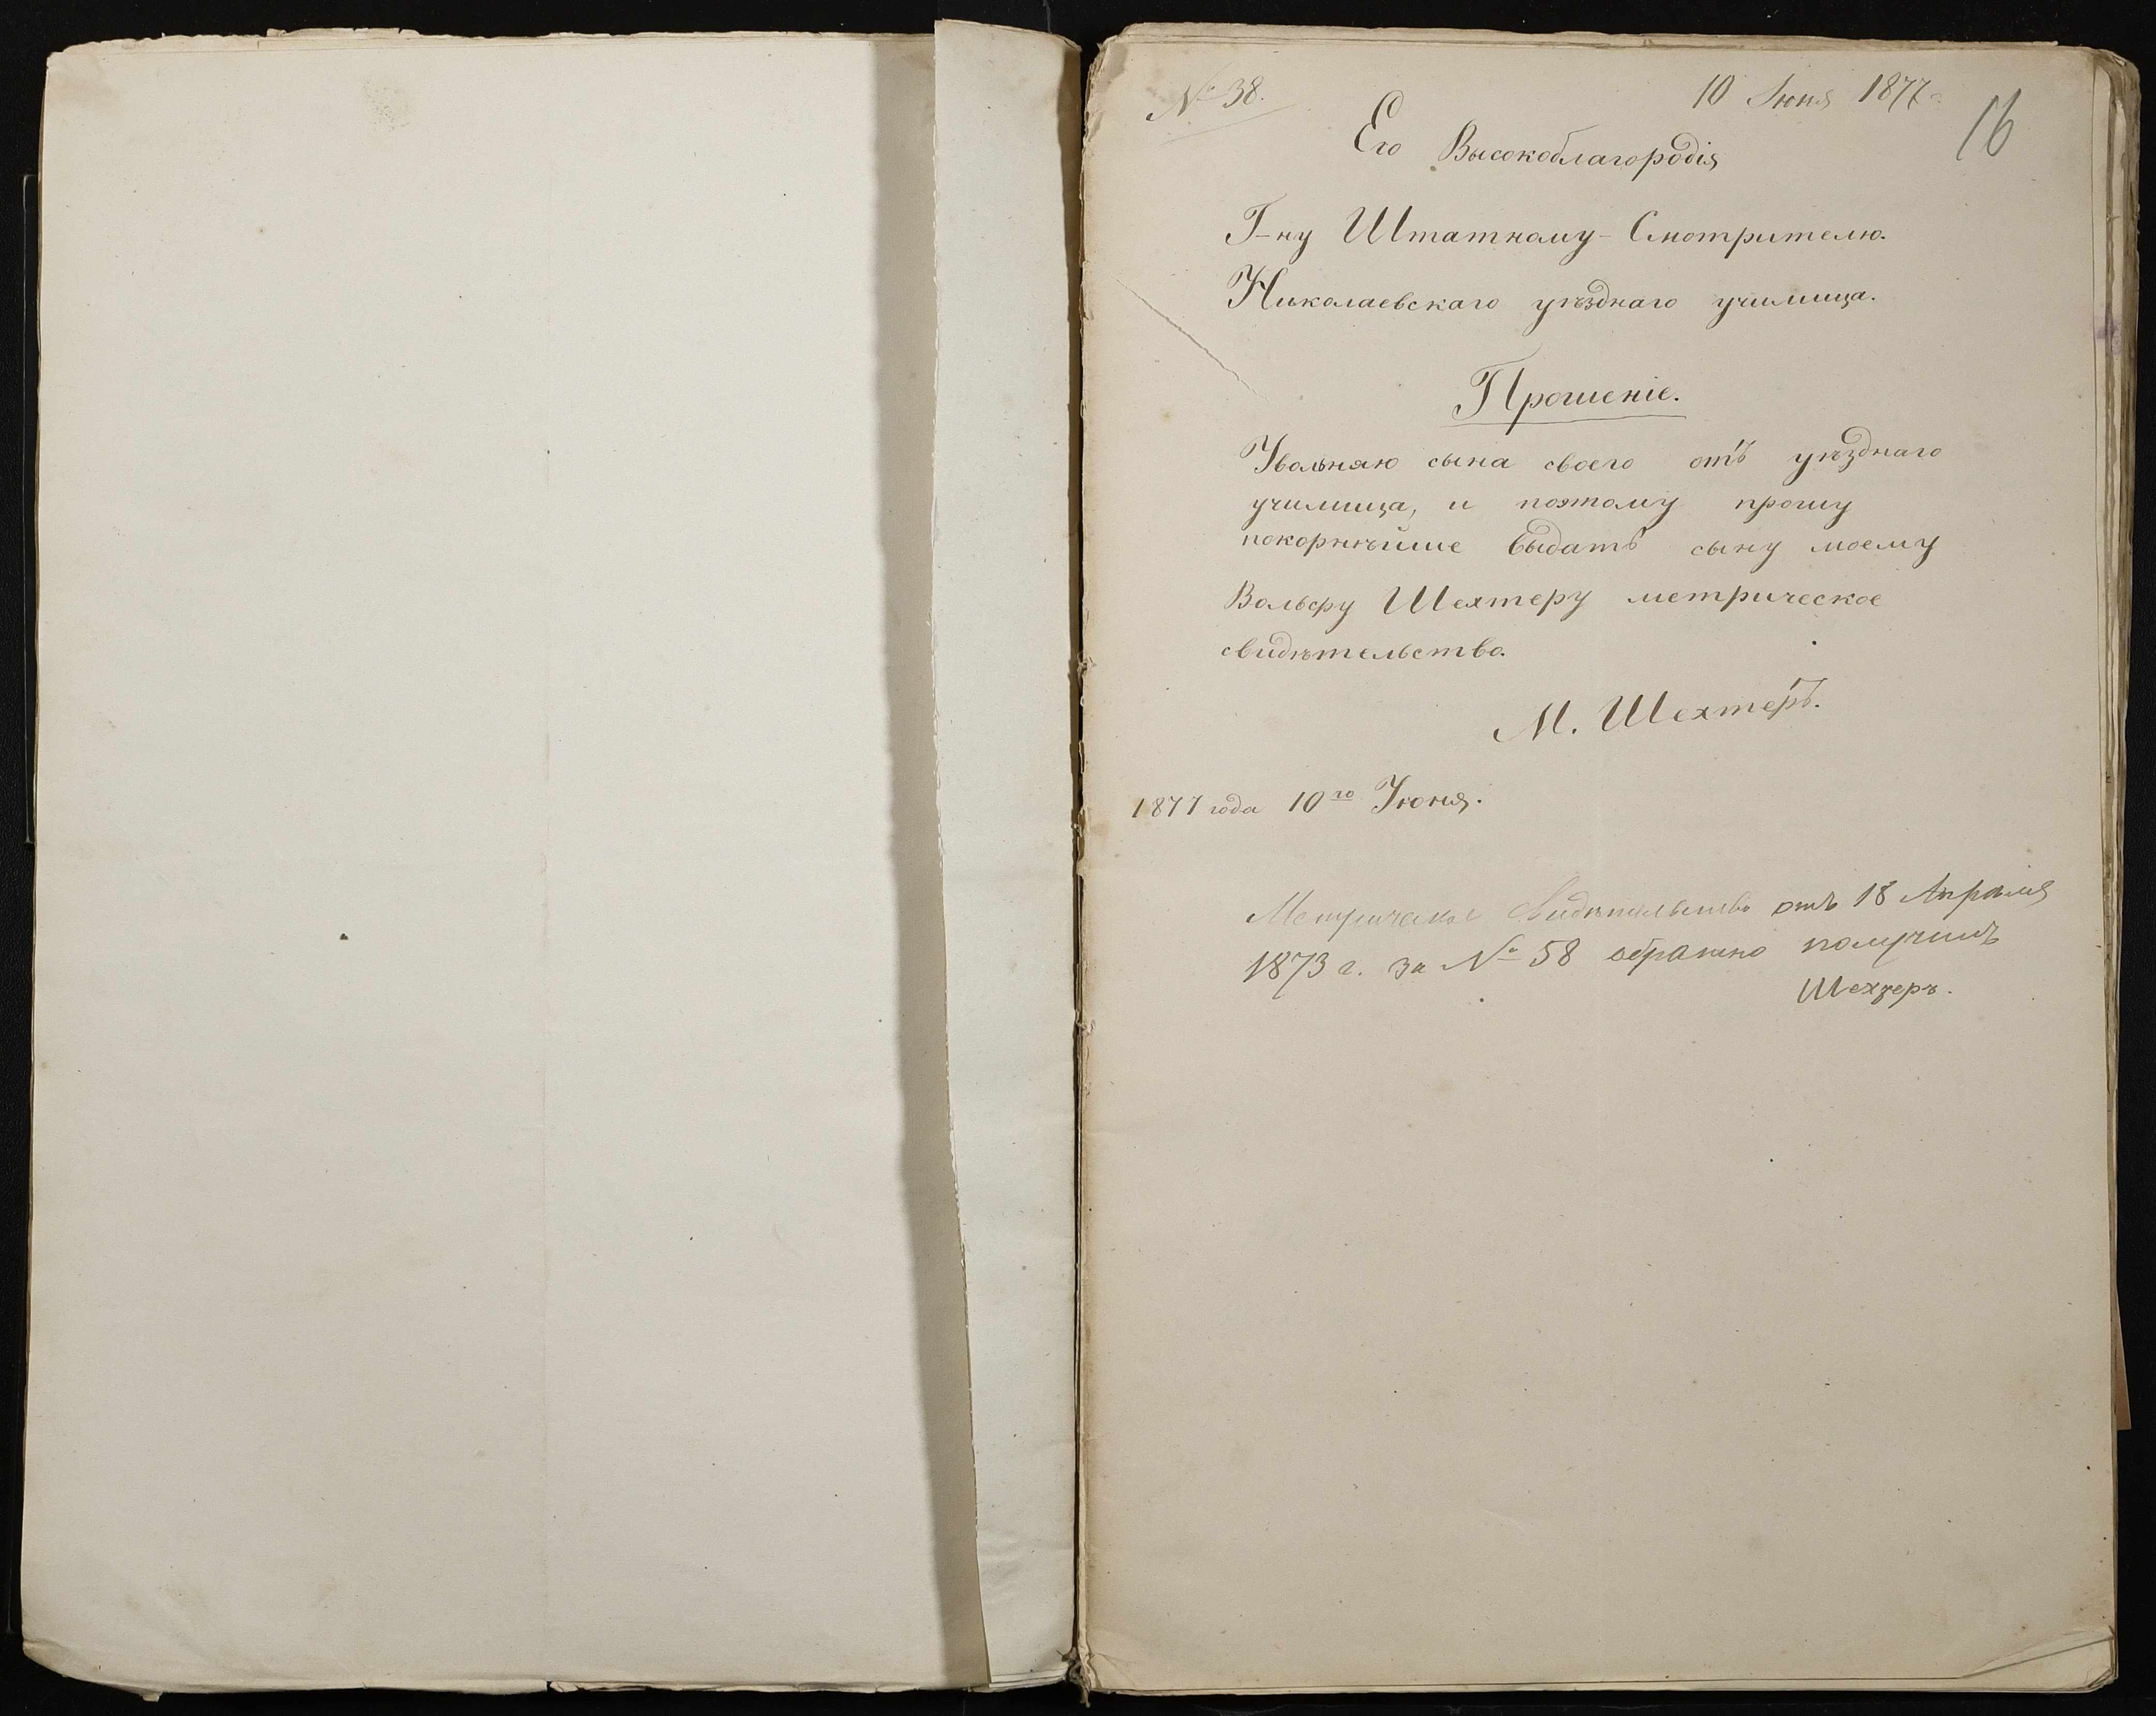 № 38.
10 Іюня 1877 г.
16
Его Высокоблагородія
Г-ну Штатному-Смотрителю.
Николаевскаго уѣзднаго училища.
Прошеніе.
Увольняю сына своего отъ уѣзднаго
училища, и поэтому прошу
покорнѣйше выдать сыну моему
Вольфу Шехтеру метрическое
свидѣтельство.
М. Шехтеръ.
1877 года 10го Іюня.
Метрическое свидѣтельство отъ 18 Апрѣля
1873 г. за № 58 обратно получилъ
Шехтеръ.